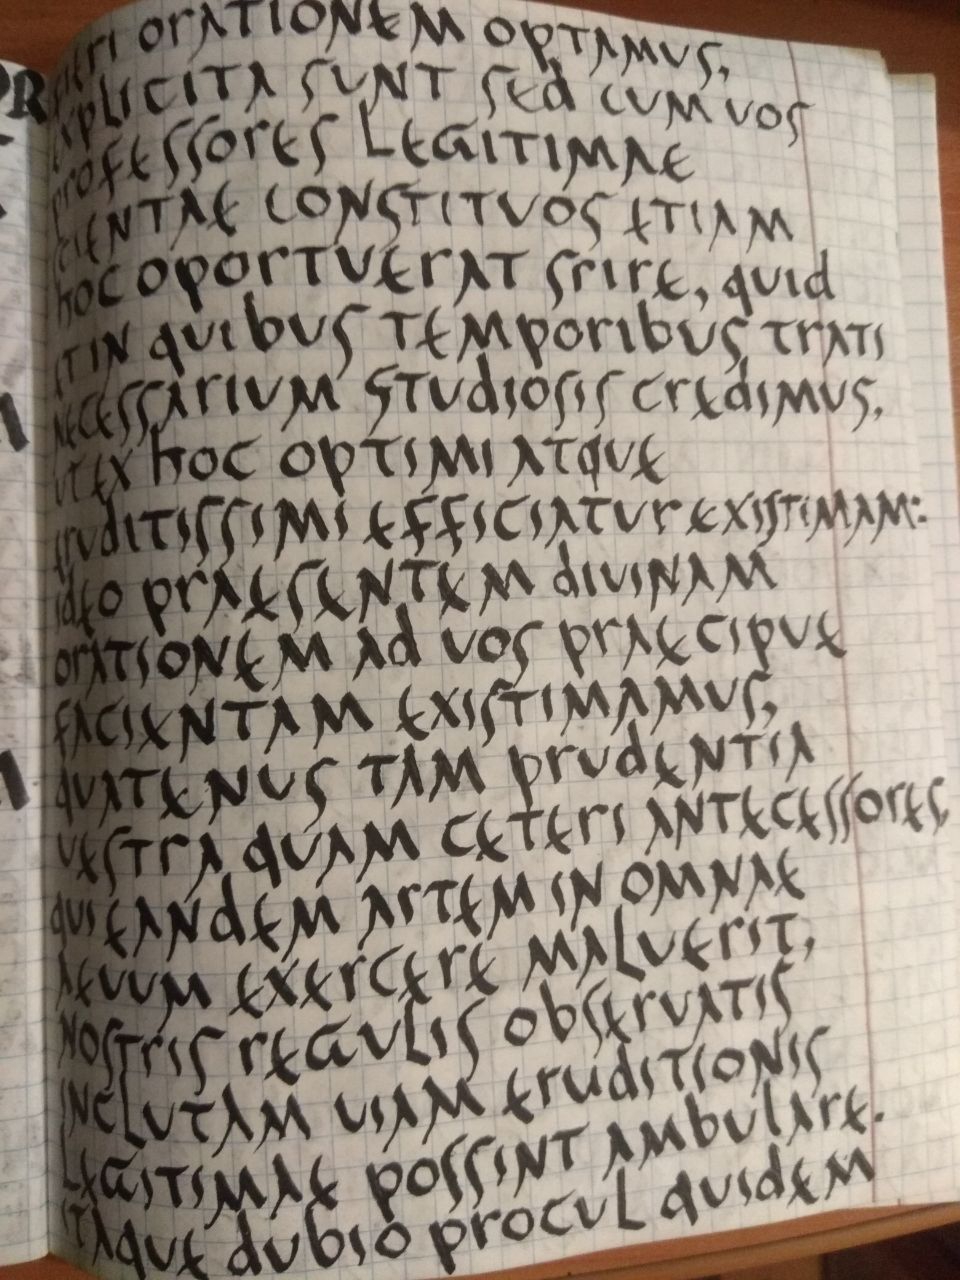 fieri orationem optamus,
explicita sunt sed cum vos
professores legitimae
scientae constituos etiam
hoc oportuerat srire, quid
et in quibus temporibus trati
necessarium studiosis credimus,
ut ex hoc optimi atque
eruditissimi efficiatur existimam:
ideo praesentem divinam
orationem ad vos praecipue
facientam existimamus,
quatenus tam prudentia
vestra quam ceteri antecessores,
qui eandem artem in omnae
aevum exercere maluerit,
nostris regulis observatis
inclutam viam eruditionis
legitimae possint ambulare.
itaque dubio procul quidem